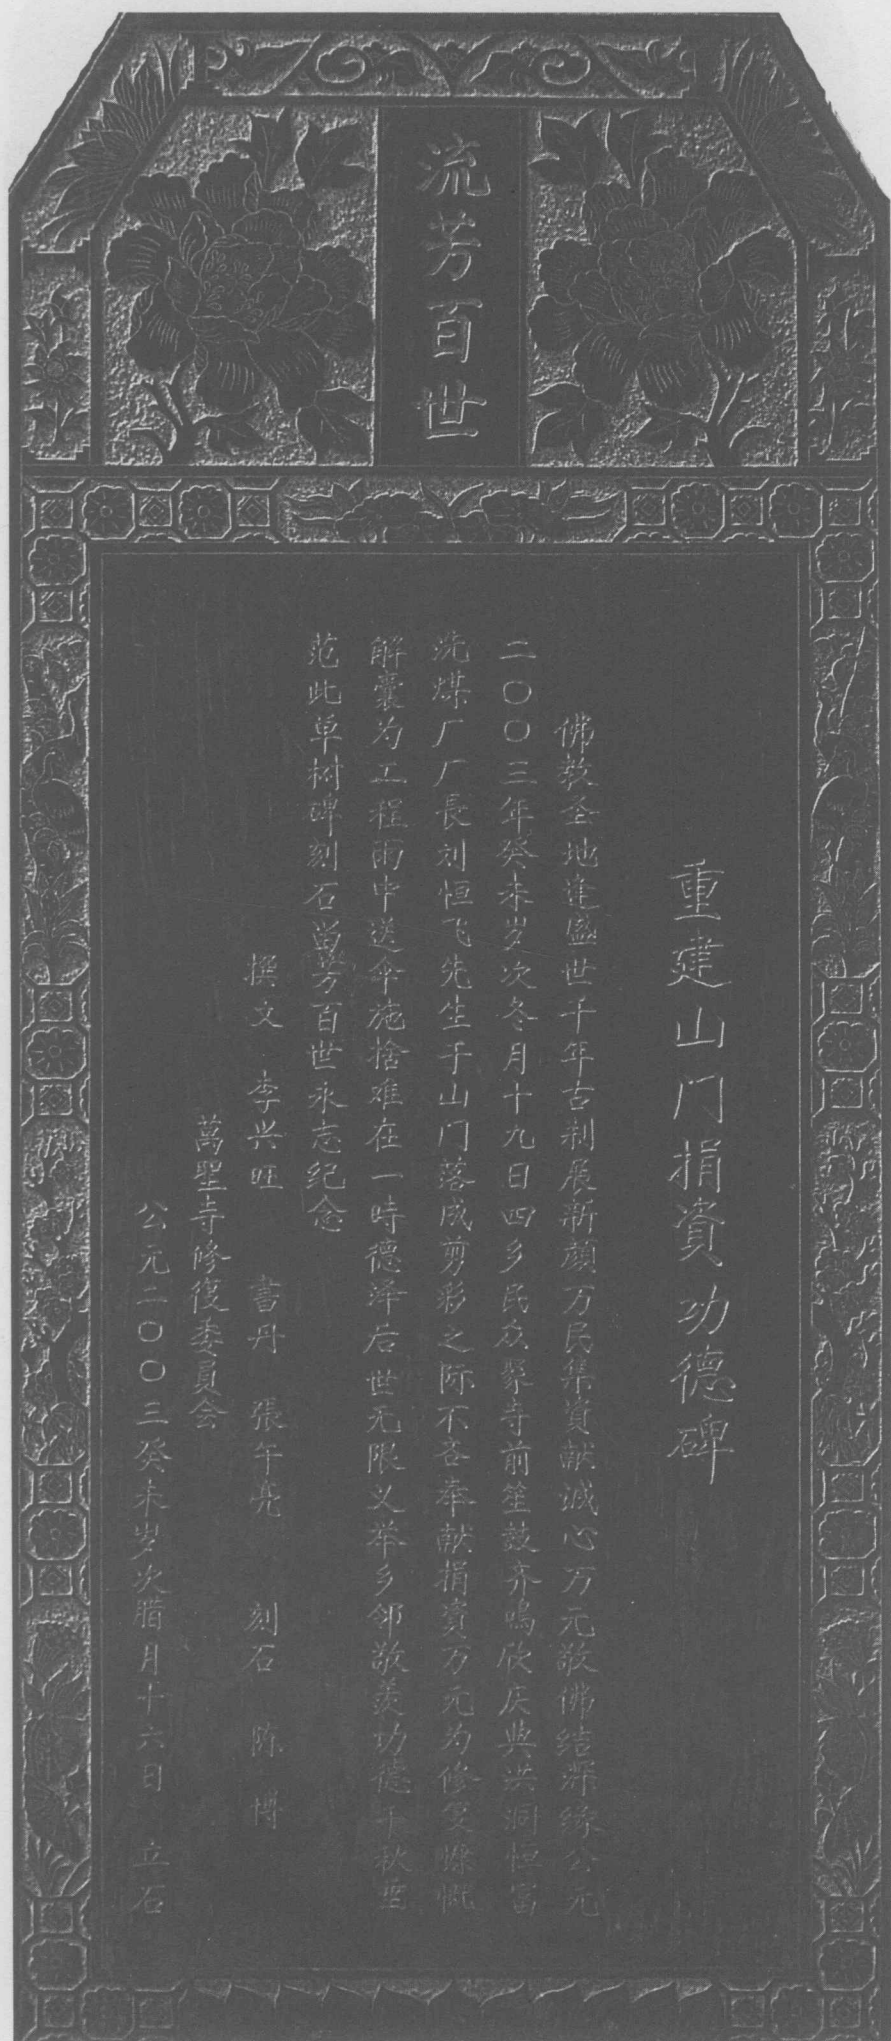 流芳百世
重建山门捐資功德碑
佛教圣地逢盛世千年古刹展新顔万民集資献诚心万元敬佛结善缘公元
二〇〇三年癸未岁次冬月十九日四乡民众聚寺前笙鼓齐鸣欣庆典洪洞恒富
洗煤厂厂長刘恒飞先生于山门落成剪彩之际不吝奉献捐資万元为修复慷慨
解囊为工程雨中送伞施捨难在一時德泽后世无限义举乡邻敬羡功德千秋
范此单树碑刻石萬芳百世永志纪念
撰文 李兴旺 書丹 張午亮 刻石 陈博
萬聖寺修復委員会
公元二〇〇三癸未岁次腊月十六日 立石